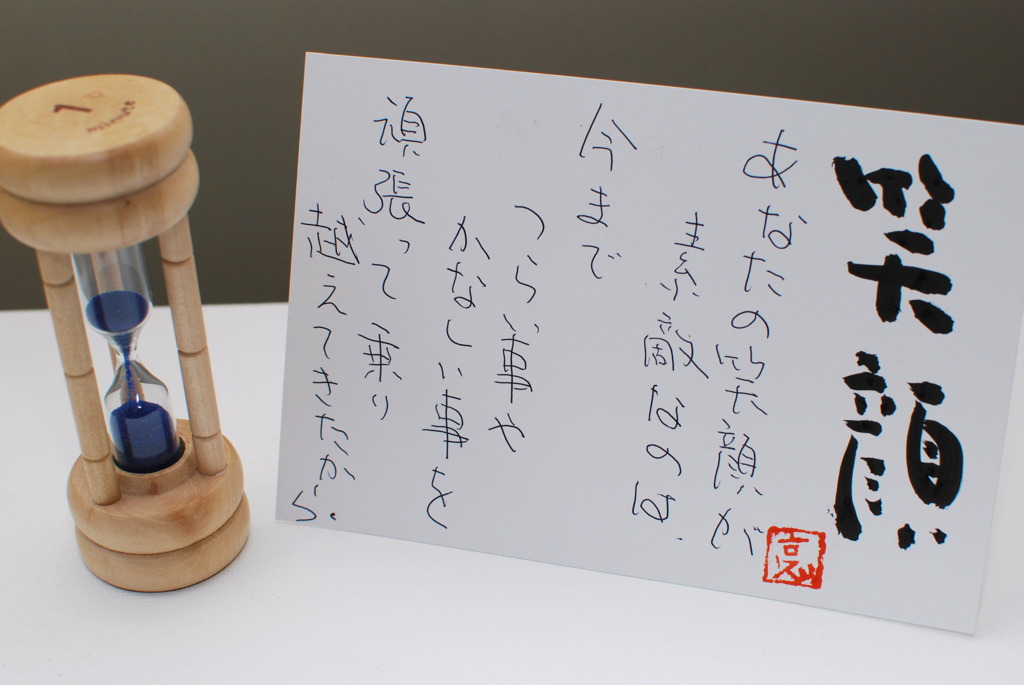 笑顔
あなたの笑顔が
素敵なのは.
今まで
つらい事や
かなしい事を
頑張って乗り
越えてきたから。
1
minute